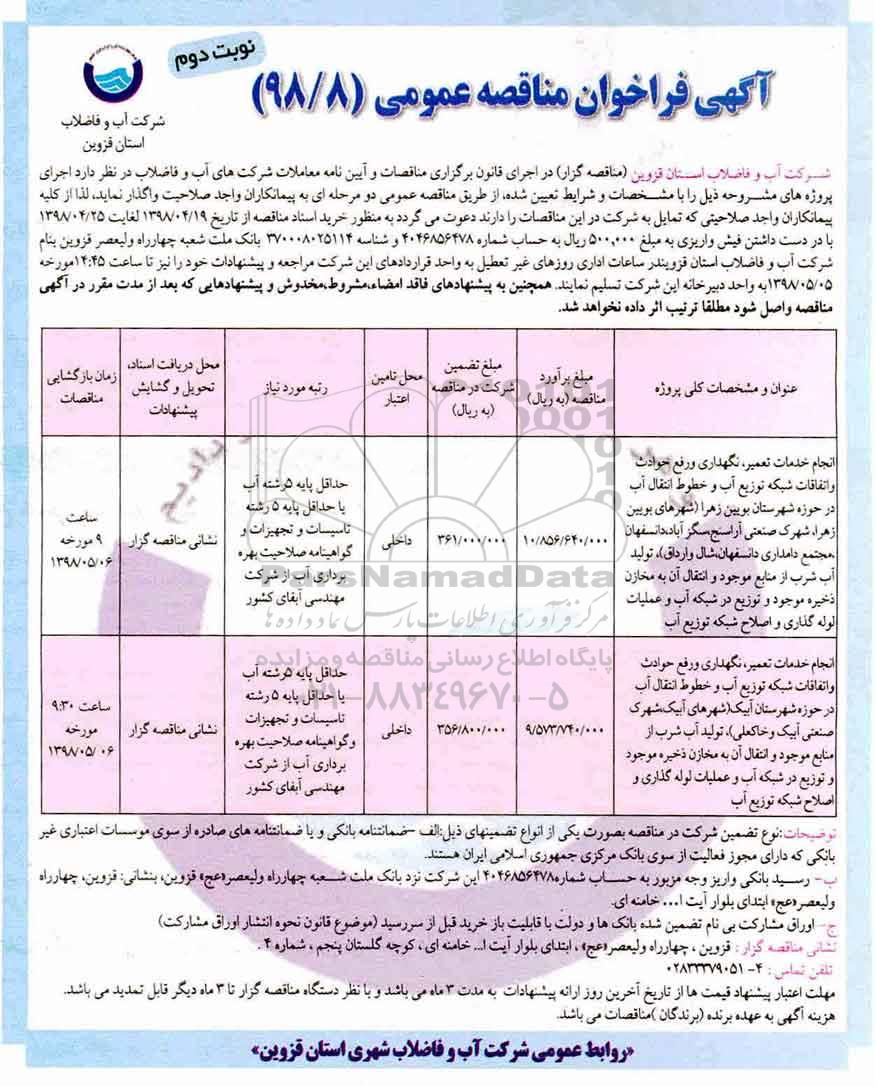 نوبت دوم
آگهی فراخوان مناقصه عمومی (۹۸/۸)
شرکت آب و فاضلاب
استان قزوین
شرکت آب و فاضلاب استان قزوین (مناقصه گزار) در اجرای قانون برگزاری مناقصات و آیین نامه معاملات شرکت های آب و فاضلاب در نظر دارد اجرای
پروژه های مشروحه ذیل را با مشخصات و شرایط تعیین شده، از طریق مناقصه عمومی دو مرحله ای به پیمانکاران واجد صلاحیت واگذار نماید، لذا از کلیه
پیمانکاران واجد صلاحیتی که تمایل به شرکت در این مناقصات را دارند دعوت می گردد به منظور خرید اسناد مناقصه از تاریخ ۱۳۹۸/۰۴/۱۹ لغایت ۱۳۹۸/۰۴/۲۵
با در دست داشتن فیش واریزی به مبلغ ۵۰۰,۰۰۰ ریال به حساب شماره ۴۰۴۶۸۵۶۴۷۸ و شناسه ۳۷۰۰۰۸۰۲۵۱۱۴ بانک ملت شعبه چهارراه ولیعصر قزوین بنام
شرکت آب و فاضلاب استان قزویندر ساعات اداری روزهای غیر تعطیل به واحد قراردادهای این شرکت مراجعه و پیشنهادات خود را نیز تا ساعت ۱۴:۴۵مورخه
۱۳۹۸/۰۵/۰۵به واحد دبیرخانه این شرکت تسلیم نمایند. همچنین به پیشنهادهای فاقد امضاء،مشروط،مخدوش و پیشنهادهایی که بعد از مدت مقرر در آگهی
مناقصه واصل شود مطلقا ترتیب اثر داده نخواهد شد.
عنوان و مشخصات کلی پروژه
مبلغ برآورد
مناقصه (به ریال)
مبلغ تضمین
شرکت در مناقصه
(به ریال)
محل تامین
اعتبار
رتبه مورد نیاز
محل دریافت اسناد،
تحویل و گشایش
پیشنهادات
زمان بازگشایی
مناقصات
انجام خدمات تعمیر، نگهداری ورفع حوادث
واتفاقات شبکه توزیع آب و خطوط انتقال آب
در حوزه شهرستان بویین زهرا (شهرهای بویین
زهرا، شهرک صنعتی آراسنج،سگز آباد،دانسفهان
،مجتمع دامداری دانسفهان،شال وارداق)، تولید
آب شرب از منابع موجود و انتقال آن به مخازن
ذخیره موجود و توزیع در شبکه آب و عملیات
لوله گذاری و اصلاح شبکه توزیع آب
۱۰/۸۵۶/۶۴۰/۰۰۰
۳۶۱/۰۰۰/۰۰۰
داخلی
حداقل پایه ۵رشته آب
یا حداقل پایه ۵ رشته
تاسیسات و تجهیزات و
گواهینامه صلاحیت بهره
برداری آب از شرکت
مهندسی آبفای کشور
نشانی مناقصه گزار
ساعت
۹ مورخه
۱۳۹۸/۰۵/۰۶
انجام خدمات تعمیر، نگهداری ورفع حوادث
واتفاقات شبکه توزیع آب و خطوط انتقال آب
در حوزه شهرستان آبیک(شهرهای آبیک،شهرک
صنعتی آبیک وخاکعلی)، تولید آب شرب از
منابع موجود و انتقال آن به مخازن ذخیره موجود
و توزیع در شبکه آب و عملیات لوله گذاری و
اصلاح شبکه توزیع آب
۹/۵۷۳/۷۴۰/۰۰۰
۳۵۶/۸۰۰/۰۰۰
داخلی
حداقل پایه ۵رشته آب
یا حداقل پایه ۵ رشته
تاسیسات و تجهیزات
وگواهینامه صلاحیت بهره
برداری آب از شرکت
مهندسی آبفای کشور
نشانی مناقصه گزار
ساعت ۹:۳۰
مورخه
۱۳۹۸/۰۵/۰۶
ParsNamadData
مرکز فرآوری اطلاعات پارس نماد داده ها
پایگاه اطلاع رسانی مناقصه و مزایده
۰۲۱-۸۸۳۴۹۶۷۰-۵
توضیحات:نوع تضمین شرکت در مناقصه بصورت یکی از انواع تضمینهای ذیل:الف -ضمانتنامه بانکی و یا ضمانتنامه های صادره از سوی موسسات اعتباری غیر
بانکی که دارای مجوز فعالیت از سوی بانک مرکزی جمهوری اسلامی ایران هستند.
ب- رسید بانکی واریز وجه مزبور به حساب شماره۴۰۴۶۸۵۶۴۷۸ این شرکت نزد بانک ملت شعبه چهارراه ولیعصر«عج» قزوین، بنشانی: قزوین، چهارراه
ولیعصر«عج» ابتدای بلوار آیت ا... خامنه ای.
ج- اوراق مشارکت بی نام تضمین شده بانک ها و دولت با قابلیت باز خرید قبل از سررسید (موضوع قانون نحوه انتشار اوراق مشارکت)
نشانی مناقصه گزار : قزوین ، چهارراه ولیعصر«عج» ، ابتدای بلوار آیت ا... خامنه ای ، کوچه گلستان پنجم ، شماره ۴ .
تلفن تماس : ۴- ۰۲۸۳۳۳۷۹۰۵۱
مهلت اعتبار پیشنهاد قیمت ها از تاریخ آخرین روز ارائه پیشنهادات به مدت ۳ ماه می باشد و با نظر دستگاه مناقصه گزار تا ۳ ماه دیگر قابل تمدید می باشد.
هزینه آگهی به عهده برنده (برندگان )مناقصات می باشد.
«روابط عمومی شرکت آب و فاضلاب شهری استان قزوین»